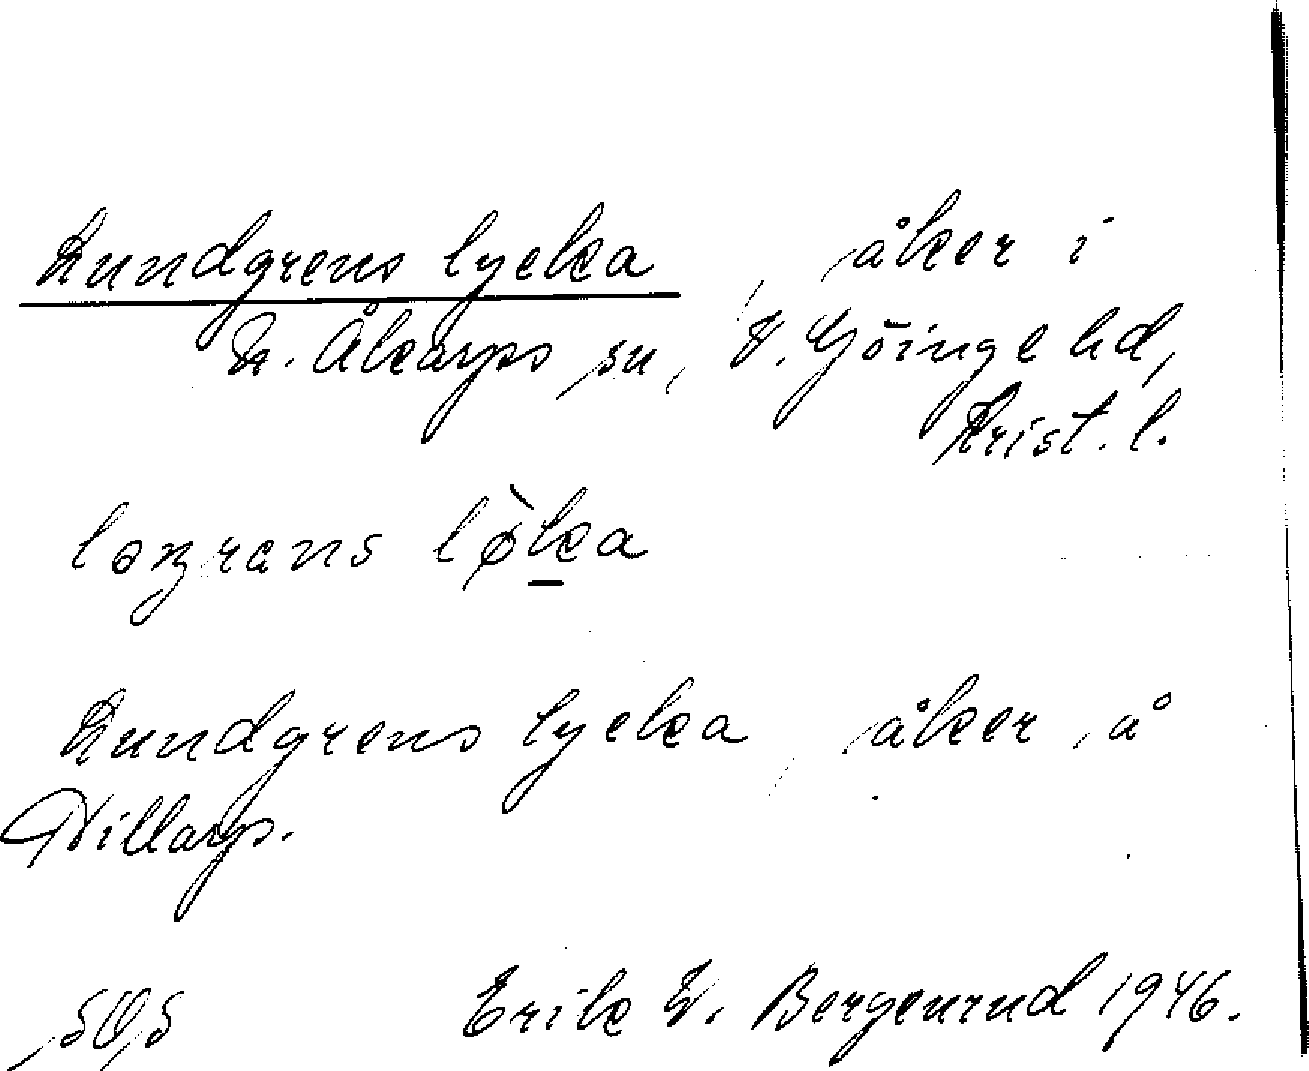 Lundgrens lycka, åker i
N. Åkarps sn, V. Göinge hd,
Krist. l.
lcka
Lundgrens lycka, åker å
Tillarp.
505 Erik W. Bergenrud 1946.